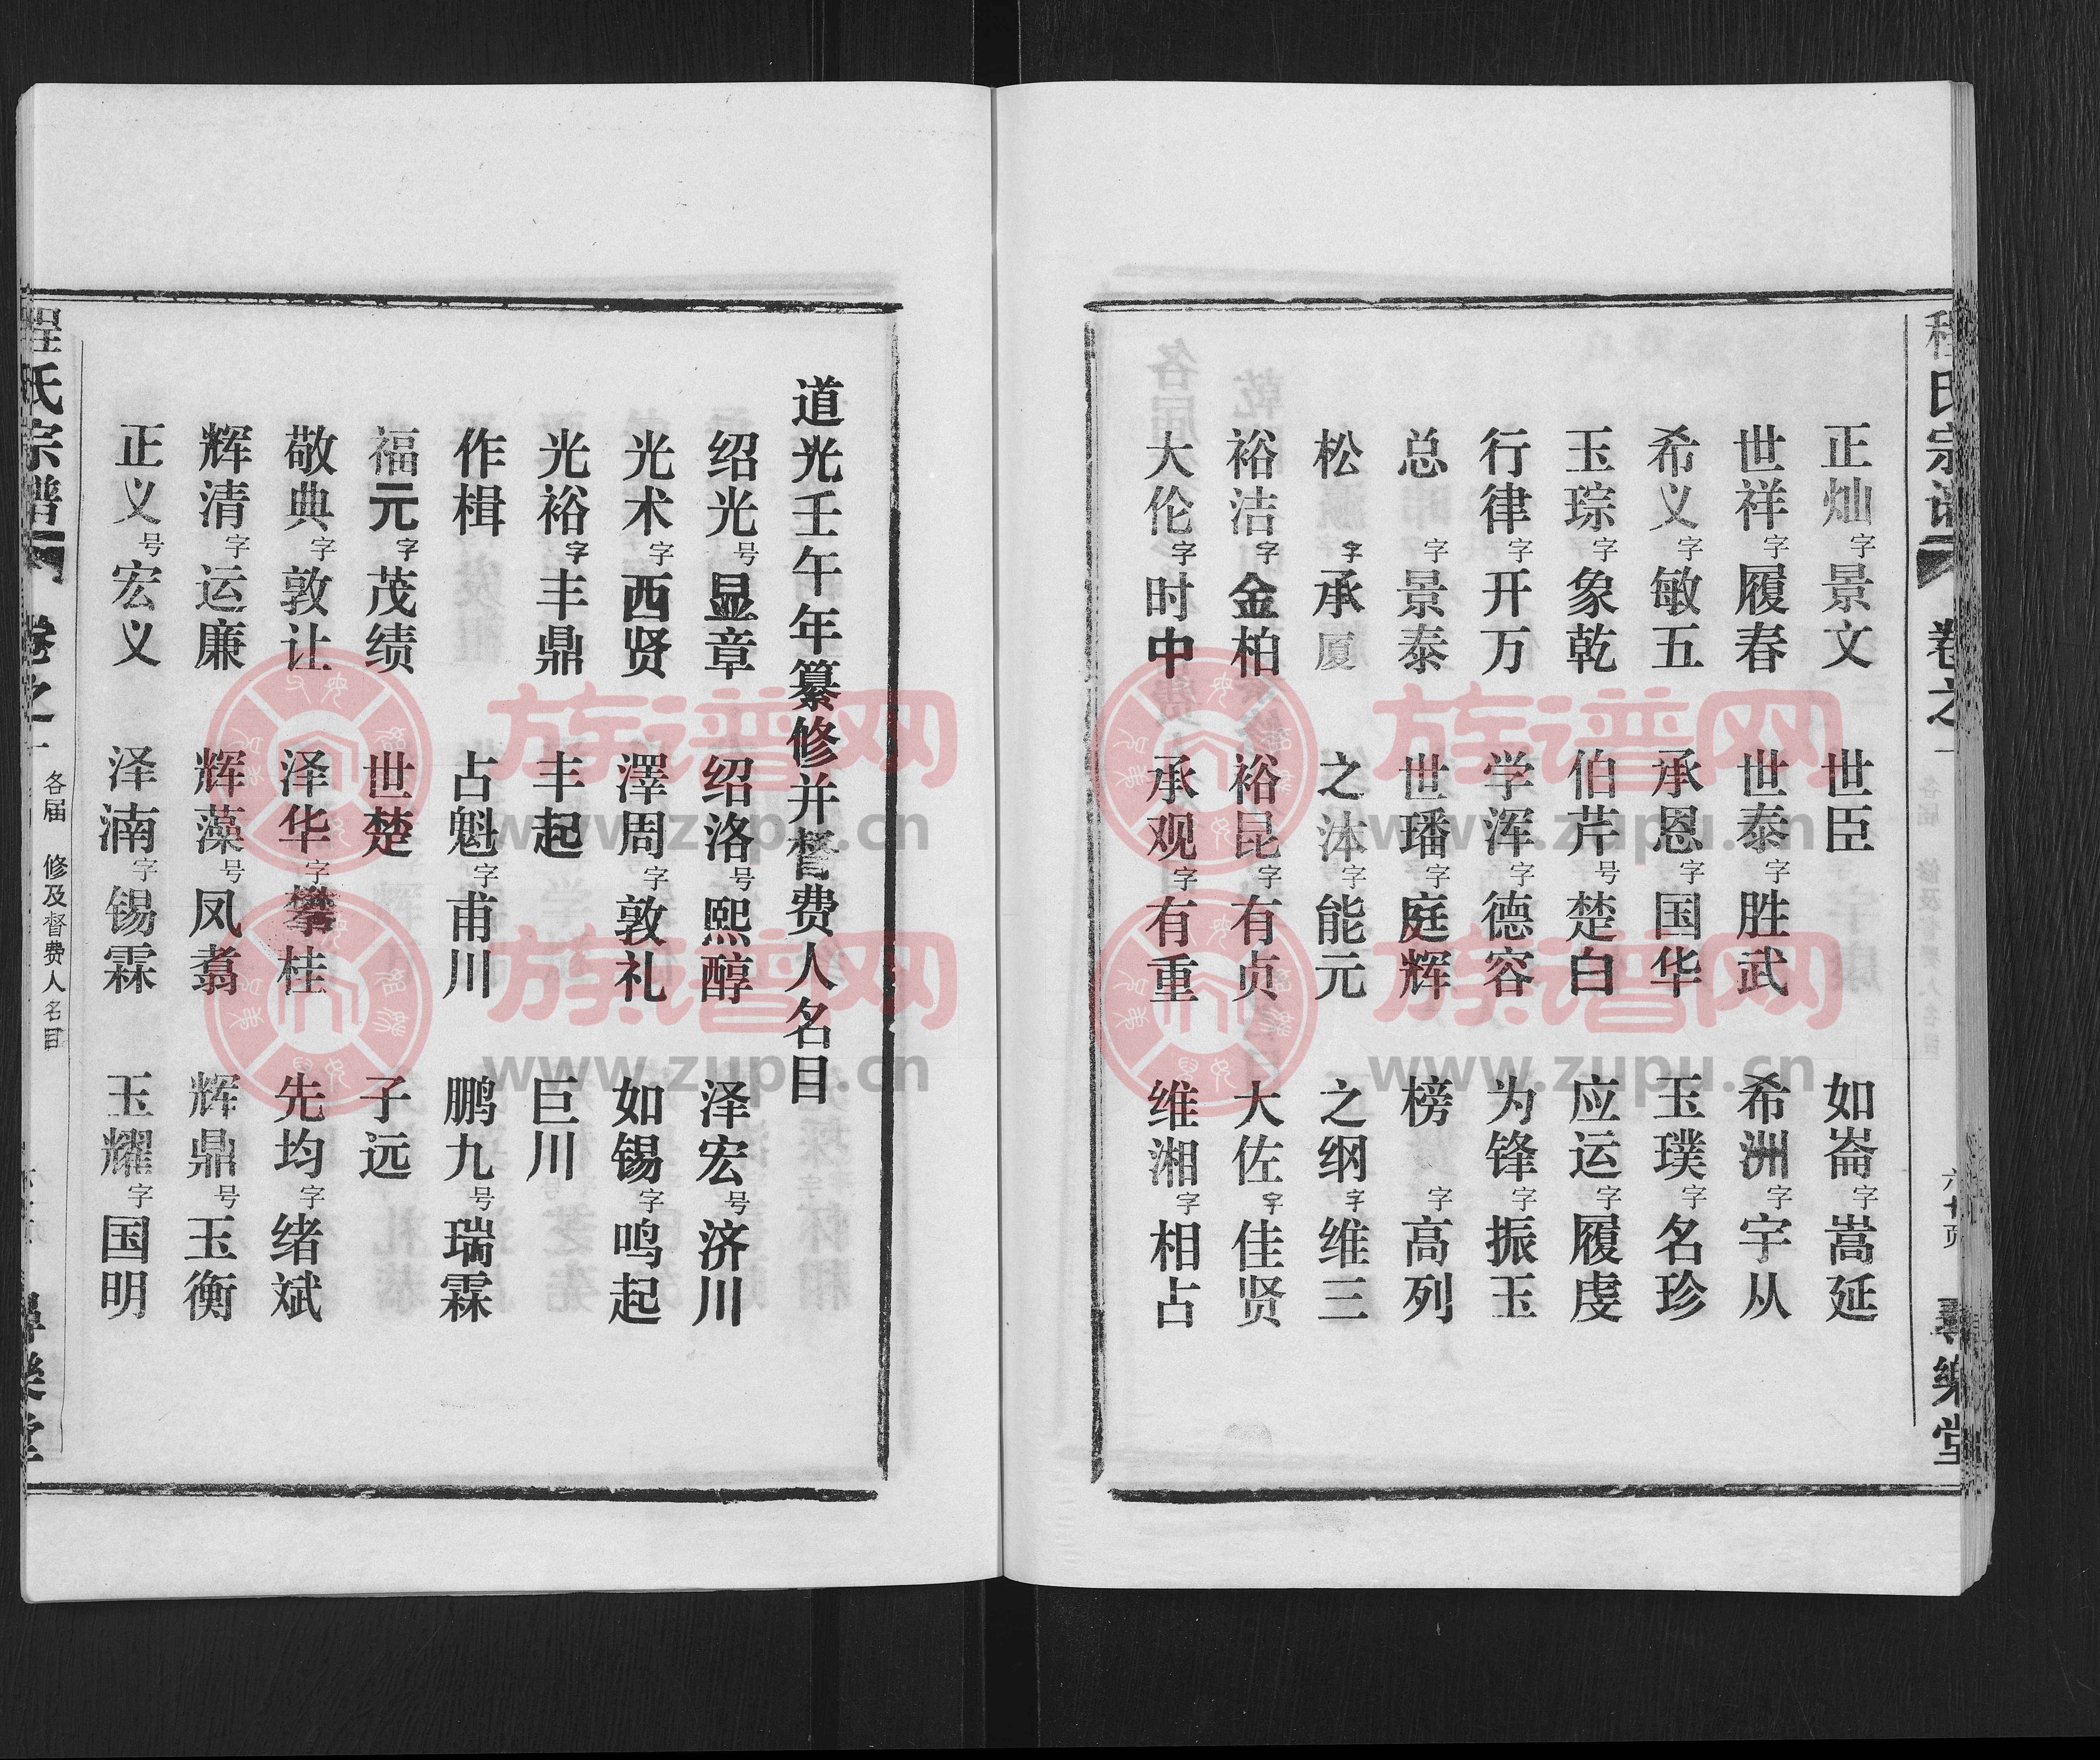 程氏宗谱 卷之一 尋樂堂
正灿字景文 世臣 如崙字嵩延
世祥字履春 世泰字胜武 希洲字宇从
希义字敏五 承恩字国华 玉璞字名珍
玉琮字象乾 伯芹号楚白 应运字履虔
行律字开万 学浑字德容 为锋字振玉
总字景泰 世璠字庭辉 榜字高列
松字承厦 之沐字能元 之纲字维三
裕洁字金柏 裕昆字有贞 大佐字佳贤
大伦字时中 承观字有重 维湘字相占
道光壬午年纂修并督费人名目
绍光号显章 绍洛号熙醇 泽宏号济川
光术字西贤 澤周字敦礼 如锡字鸣起
光裕字丰鼎 丰起 巨川
作楫 占魁字甫川 鹏九号瑞霖
福元字茂绩 世楚 子远
敬典字敦让 泽华字攀桂 先均字绪斌
辉清字运廉 辉藻号凤翥 辉鼎号玉衡
正义号宏义 泽湳字锡霖 玉耀字国明
程氏宗谱 卷之一 各届 修及督费人名目 尋樂堂
族谱网
www.zupu.cn
族谱网
www.zupu.cn
族谱网
www.zupu.cn
族谱网
www.zupu.cn